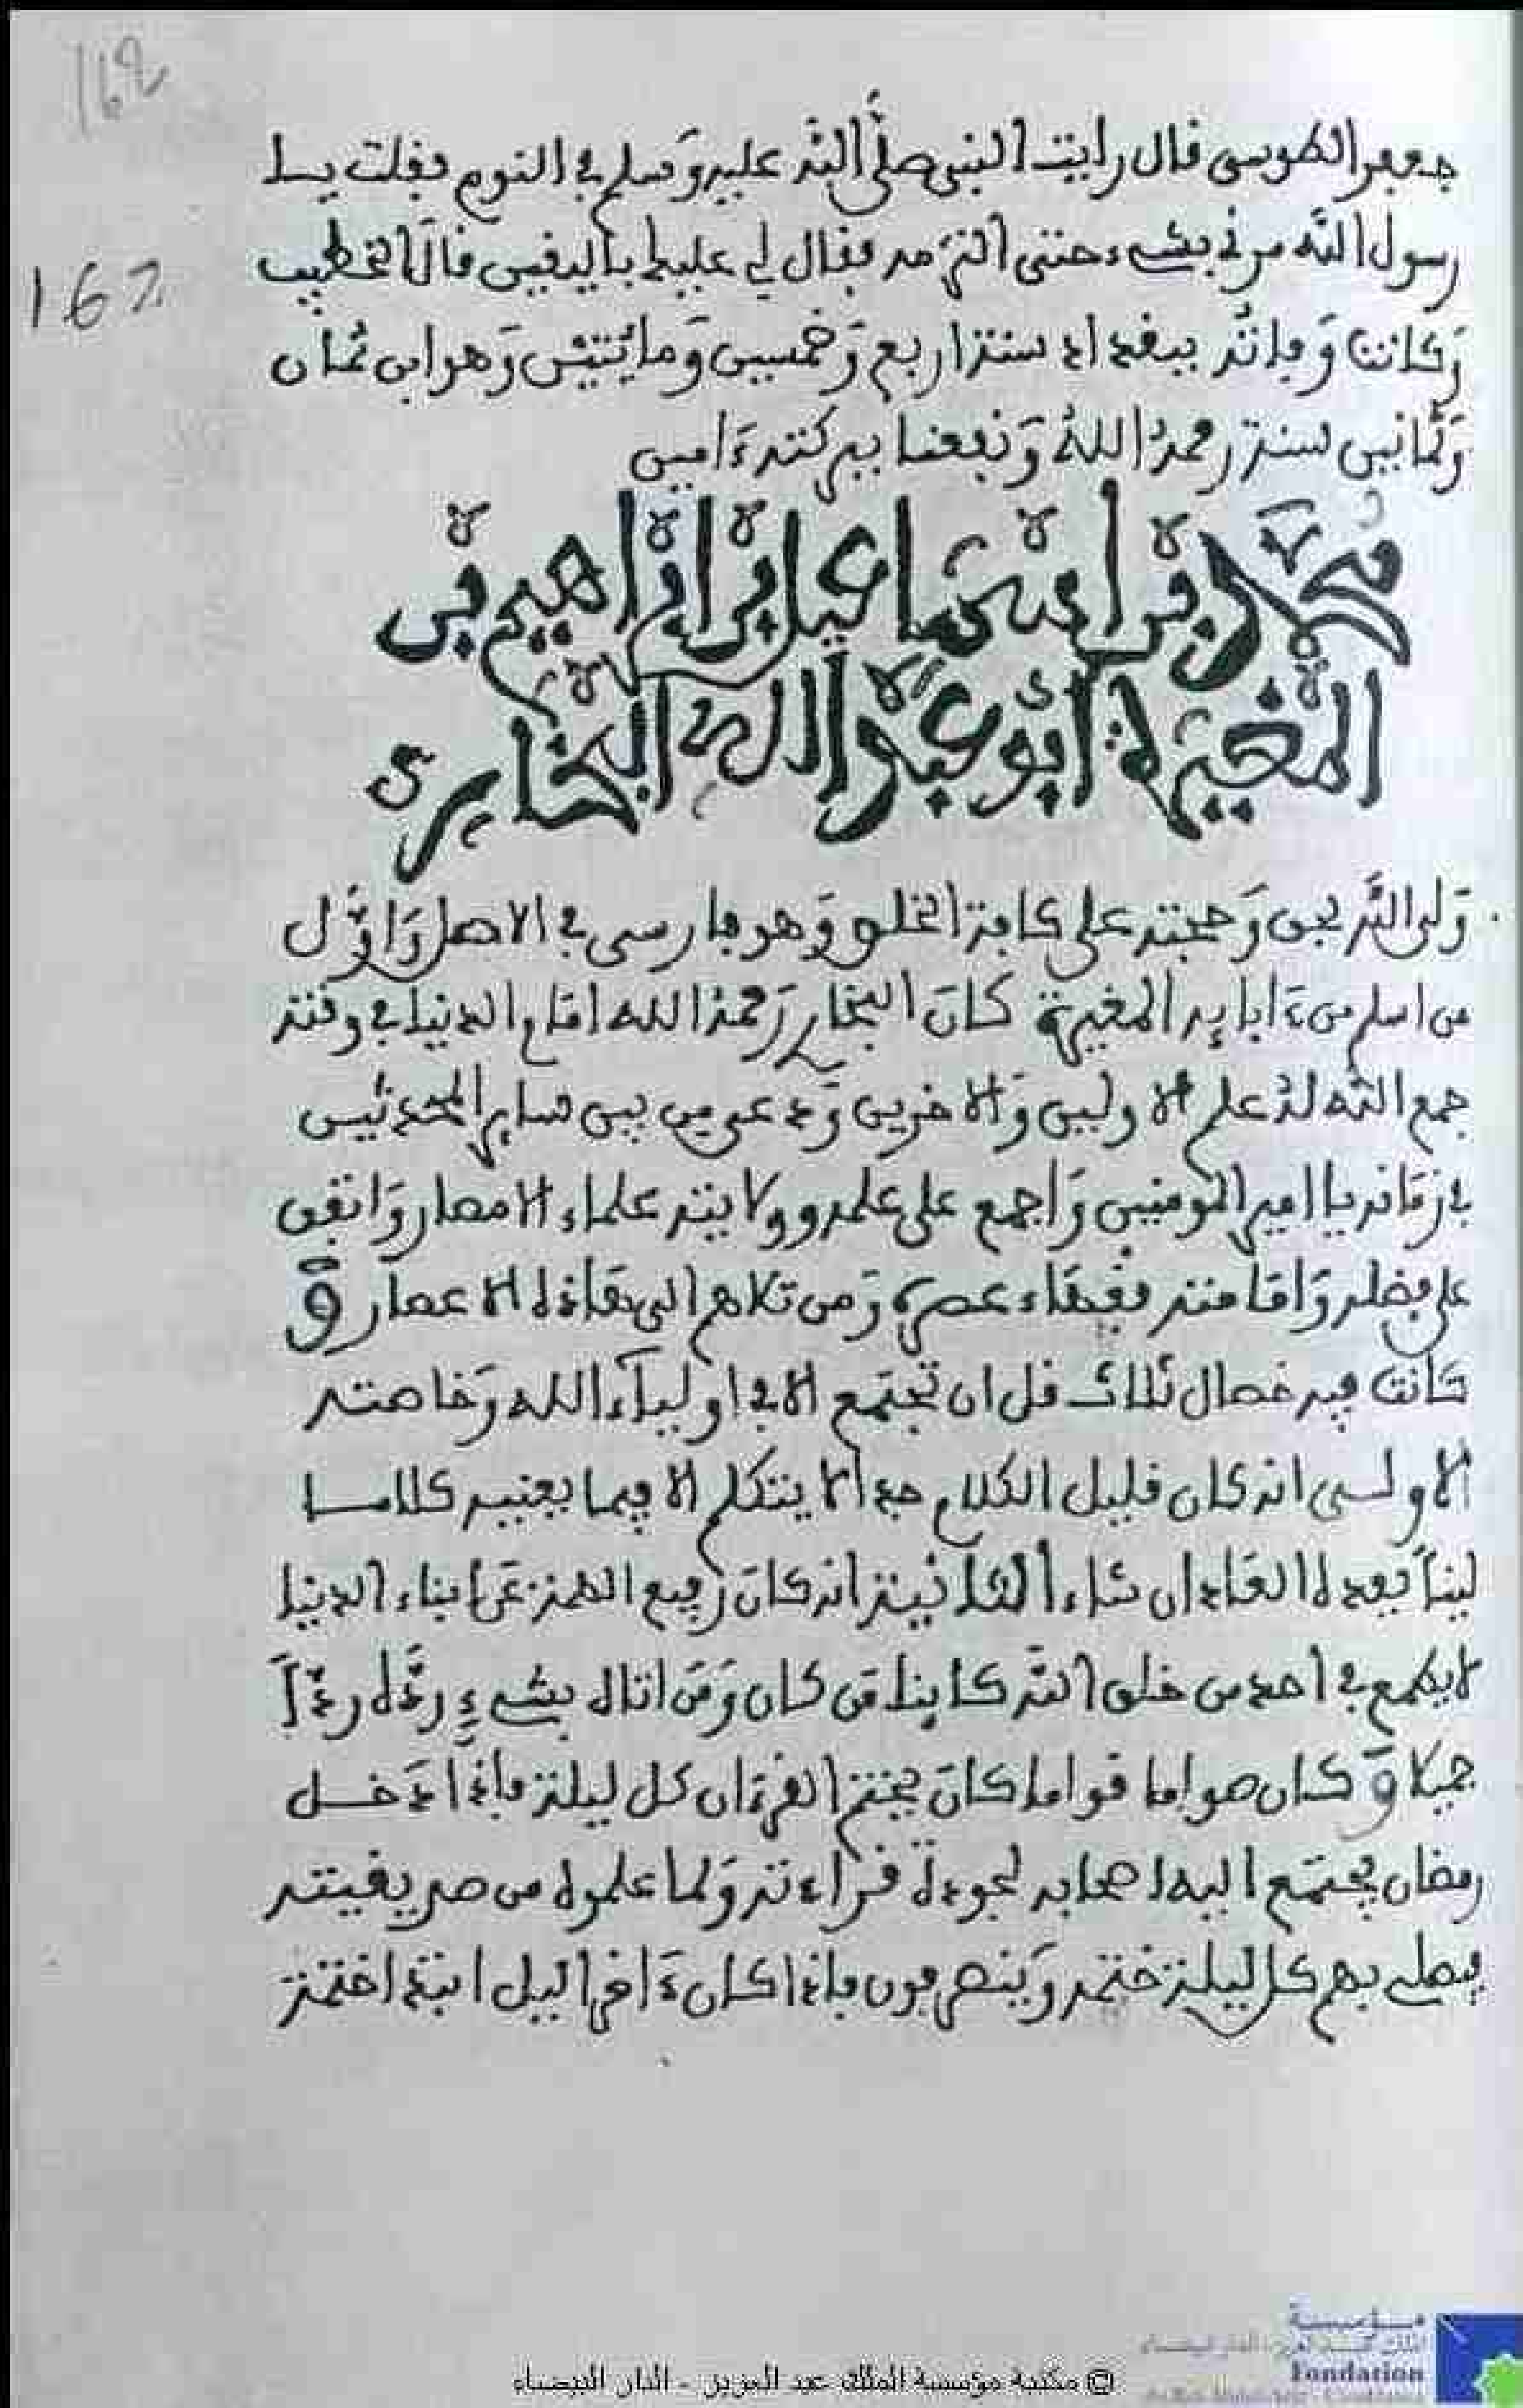 162
162
جعفر الطوسي قال رايت النبي صلى الله عليه وسلم في النوم فقلت يا
رسول الله مرني بشيء حتى التزمه فقال لي عليك باليقين قال الخطيب
وكانت وفاته ببغداد سنة اربع وخمسين ومائتين وهو ابن ثمان
وثمانين سنة رحمه الله ونفعنا ببركته ءامين
محمد بن اسماعيل بن ابراهيم بن
المغيرة ابو عبد الله البخاري
ولي الله يحيى وحجته على كافة الخلق وهو فارسي في الاصل واول
من اسلم من ءابايه المغيرة كان البخاري رحمه الله امام الدنيا في وقته
جمع الله له علم الاولين والاخرين ودعي من بين ساير المحدثين
في زمانه يا امير المومنين واجمع على علمه وولايته علماء الامصار واتفق
على فضله وامامته فقهاء عصره ومن تلاهم الى هاذه الاعصار و
كانت فيه خصال ثلاث قل ان تجتمع الا في اولياء الله وخاصته
الاولى انه كان قليل الكلام جدا لا يتكلم الا فيما يعنيه كلاما
لينا يعده العاد ان شاء الثانية انه كان رفيع الهمة عن ابناء الدنيا
لا يطمع في احد من خلق الله كاينا من كان ومن اتاه بشيء رده ردا
جميلا وكان صواما قواما كان يختم القرءان كل ليلة فاذا دخل
رمضان يجتمع اليه اصحابه لجودة قراءته ولما علموه من صريقيته
فيصلي بهم كل ليلة ختمه وينصرفون فاذا كان ءاخر اليل ابتدا ختمة
© مكتبة مؤسسة الملك عبد العزيز - الدار البيضاء
مؤسسة
Fondation